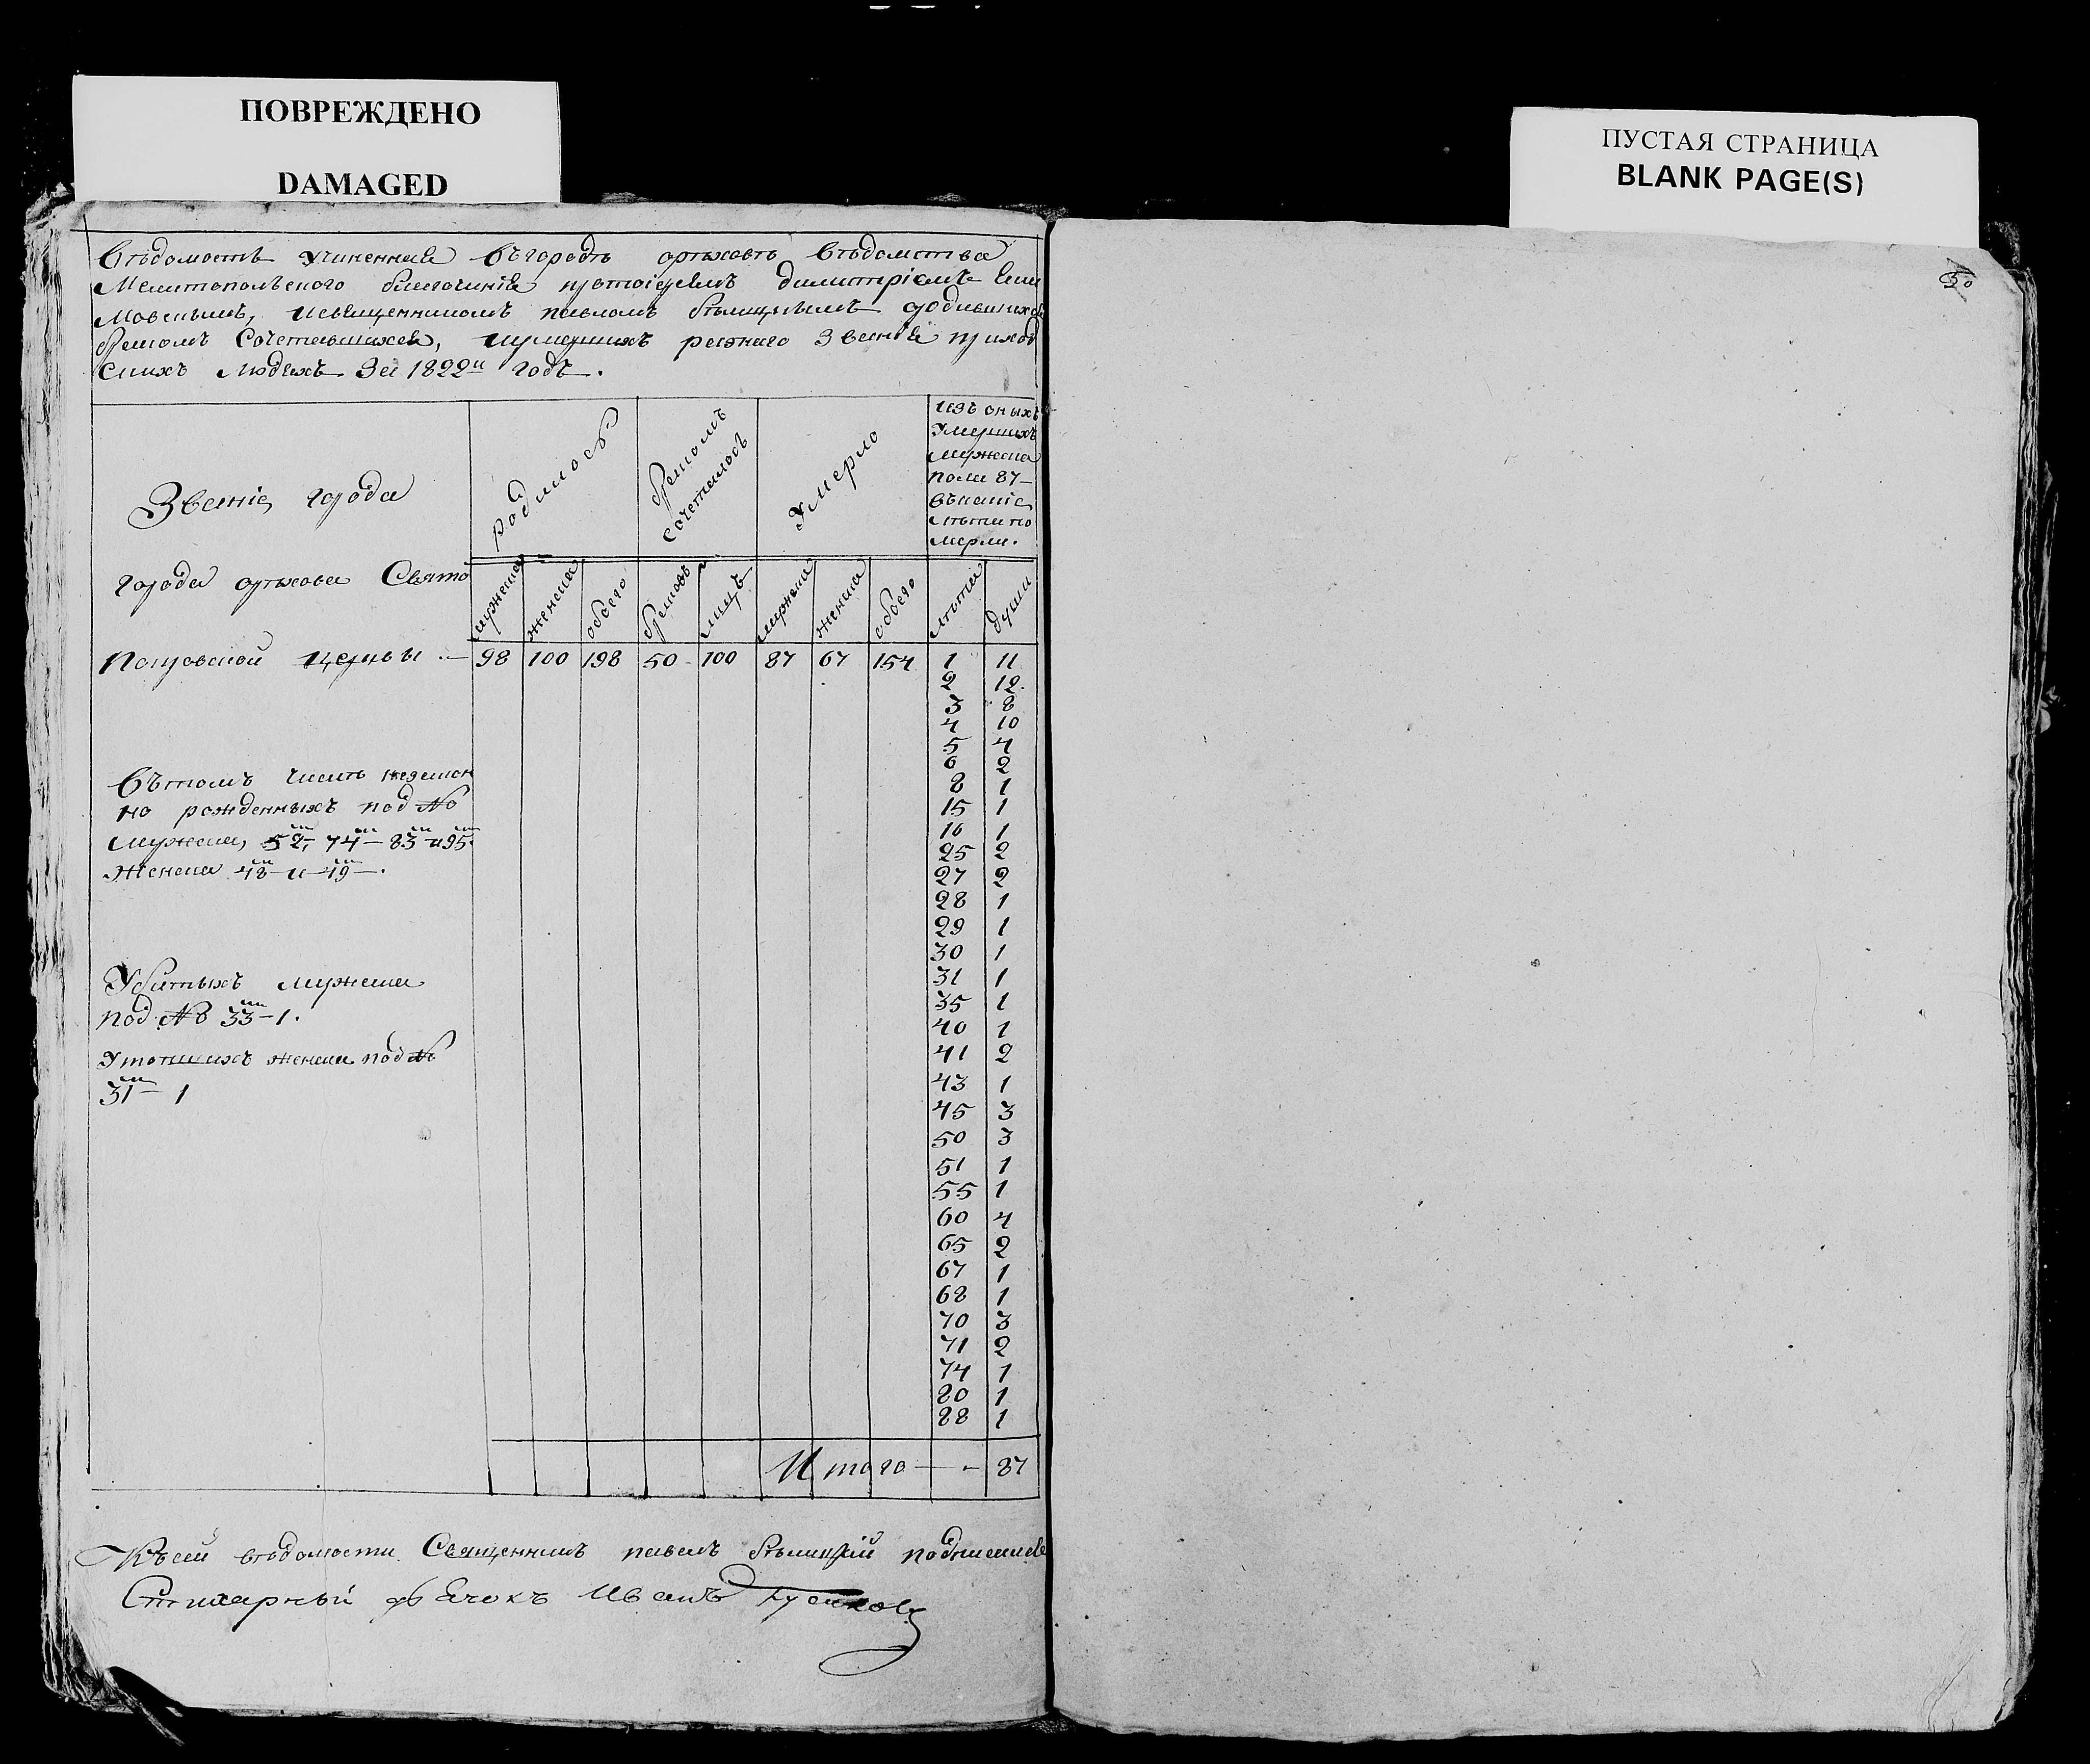 ПОВРЕЖДЕНО
DAMAGED
ПУСТАЯ СТРАНИЦА
BLANK PAGE(S)
50
Вѣдомость учиненная въ городѣ орѣховѣ вѣдомства
Мелитопольского благочинія протоіереемъ димитріемъ
и священникомъ павломъ бѣлицкимъ о родившихся
бракомъ сочетавшихся, и умершихъ разнаго звания приход
скихъ людехъ За 1822й годъ.
Звание города
родилось
бракомъ сочеталось
Умерло
изъ оныхъ
Умершихъ
мужеска
пола 87
въ какие
лѣта по
мерли.
мужеска женска обоего браковъ лицъ мужеска женска обоего лѣта души
города орѣхова Свято
Покровской церкви 98 100 198 50 100 87 67 154 1 11
2 12
3 8
4 10
5 4
6 2
8 1
15 1
16 1
25 2
27 2
28 1
29 1
30 1
31 1
35 1
40 1
41 2
43 1
45 3
50 3
51 1
55 1
60 4
65 2
67 1
68 1
70 3
71 2
74 1
80 1
88 1
въ томъ числѣ незакон
но рожденныхъ под №
мужеска, 52, 74 83 и 95.
женска 48 и 49.
Убитыхъ мужеска
под № 33 - 1.
Утопшихъ женска под №
31 - 1
Итого 87
Къ сей вѣдомости Священникъ павелъ бѣлицкий подписался
Стихарный дьячокъ Иванъ